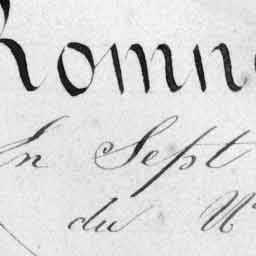 Romn
En Sept
du